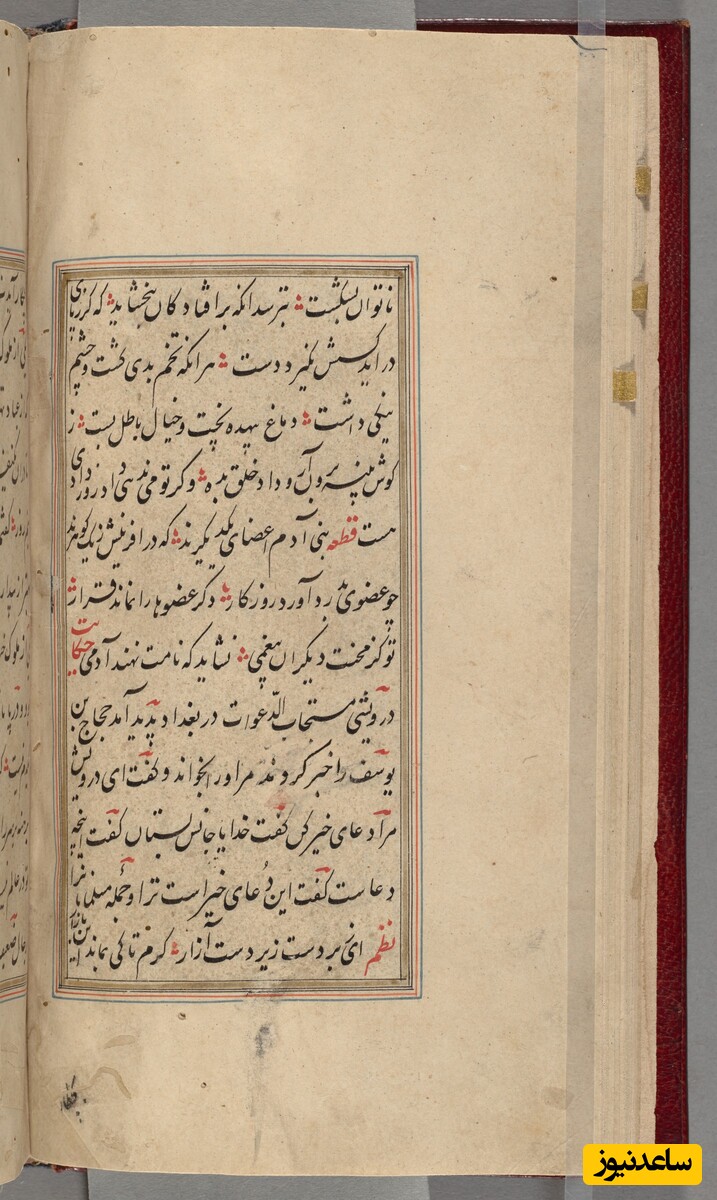 ناتوان بشکست نترسد انکه برافتادگان نبخشاید که گر زپای
در اید کسش نگیرد دست هر انکه تخم بدی کشت و چشم
نیکی داشت دماغ بیهده پخت و خیال باطل بست ز
کوش پنبه برون آر و داد خلق بده وگر تو می ندهی داد روز دادی
هست قطعه بنی آدم اعضای یکدیگرند که در افرینش ز یک گوهرند
چو عضوی بدرد آورد روزگار دگر عضوها را نماند قرار
تو کز محنت دیگران بیغمی نشاید که نامت نهند آدمی حکایت
درویشی مستجاب الدّعوات در بغداد پدید آمد حجاج بن
یوسف را خبر کردند مر او را بخواند و گفت ای درویش
مرا دعای خیر کن گفت خدایا جانش بستان گفت این چه
دعاست گفت این دُعای خیر است ترا و جُمله مسلمانانرا
نظم ای زبردست زیردست آزار گرم تا کی بماند این بازار
ساعدنیوز